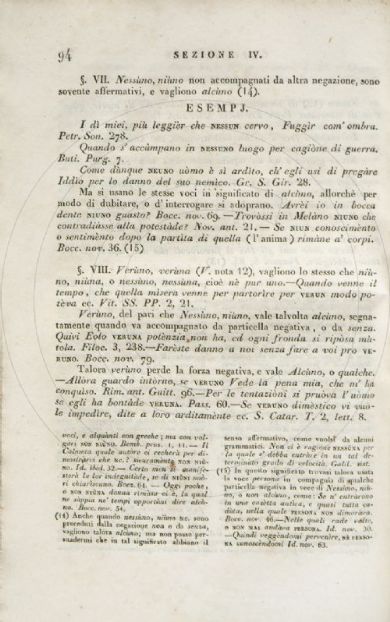 94 SEZIONE IV.
§. VII. Nessùno, niùno non accompagnati da altra negazione, sono
sovente affermativi, e vagliono alcùno (14).
ESEMPJ.
I dì miei, più leggièr che NESSUN cervo, Fuggìr com' ombra.
Petr. Son. 278.
Quando s' accàmpano in NESSUNO luogo per cagiòne di guerra.
Buti. Purg. 7.
Come dùnque NEUNO uòmo è sì ardito, ch' egli usi di pregàre
Iddio per lo danno del suo nemìco. Gr. S. Gir. 28.
Ma si usano le stesse voci in significato di alcùno, allorchè per
modo di dubitare, o d' interrogare si adoprano. Avrèi io in bocca
dente NIUNO guasto? Bocc. nov. 69. — Trovòssi in Melàno NIUNO che
contradiàsse alla potestàde? Nov. ant. 21. — Se NIUN conoscimènto
o sentimènto dòpo la partita di quella (l' anima) rimàne a' corpi.
Bocc. nov. 36. (15)
§. VIII. Verùno, verùna (V. nota 12), vagliono lo stesso che niù-
no, niùna, o nessùno, nessùna, cioè nè pur uno. — Quando venne il
tempo, che quella mìsera venne per partorìre per VERUN modo po-
tèva ec. Vit. SS. PP. 2, 21.
Verùno, del pari che Nessùno, niùno, vale talvolta alcùno, segna-
tamente quando va accompagnato da particella negativa, o da senza.
Quivi Eolo VERUNA potènzia non ha, ed ogni fronda si ripòsa mù-
tola. Filoc. 3, 238. — Farèste danno a noi senza fare a voi pro VE-
RUNO. Bocc. nov. 79.
Talora verùno perde la forza negativa, e vale Alcùno, o qualche.
— Allòra guardo intòrno, se VERUNO Vede la pena mia, che m' ha
conquìso. Rim. ant. Guitt. 96. — Per le tentaziòni si pruòva l' uòmo
se egli ha bontàde VERUNA. Pass. 60. — Se VERUNO dimèstico vi vuò-
le impedìre, dite a loro arditamènte ec. S. Catar. T. 2, lett. 8.
voci, e alquànti con greche; ma con vol-
gari NON NIUNO. Bemb. pros. 1, 11. — Il
nessitàrio che ec.? sicuramènte NON NIU-
no. Id. ibid. 32. — Certo non
ri chiarissimo. Boez. 64. — Oggi poche,
o NON NIUNA donna rimàsa ci è, la qual
ne sàppia ne' tempi opportùni dire alcù-
na. Bocc. nov. 54.
(14) Anche quando nessùno, niùno ec. sono
preceduti dalla negazione non o da senza,
vagliono talora alcùno; ma non posso per-
suadermi che in tal significato abbiano il
senso affermativo, come vuolsi da alcuni
grammatici. Non ci è ragiòne NESSUNA per
la quale e' debba entràre in un tal de-
terminàto grado di velocità. Galil. sist.
(15) In questo significato trovasi talora usata
la voce persona in compagnia di qualche
particella negativa in vece di Nessùno, niù-
no, o non alcùno, come: Se n' entràrono
in una casètta antica, e quasi tutta ca-
dùta, nella quale PERSONA NON dimoràva.
Bocc. nov. 46 — Nelle quali rade volte,
o NON MAI andàva PERSONA. Id. nov. 30.
— Quindi veggèndomi pervenire, nè PERSO-
NA conoscèndoci Id. nov. 63.